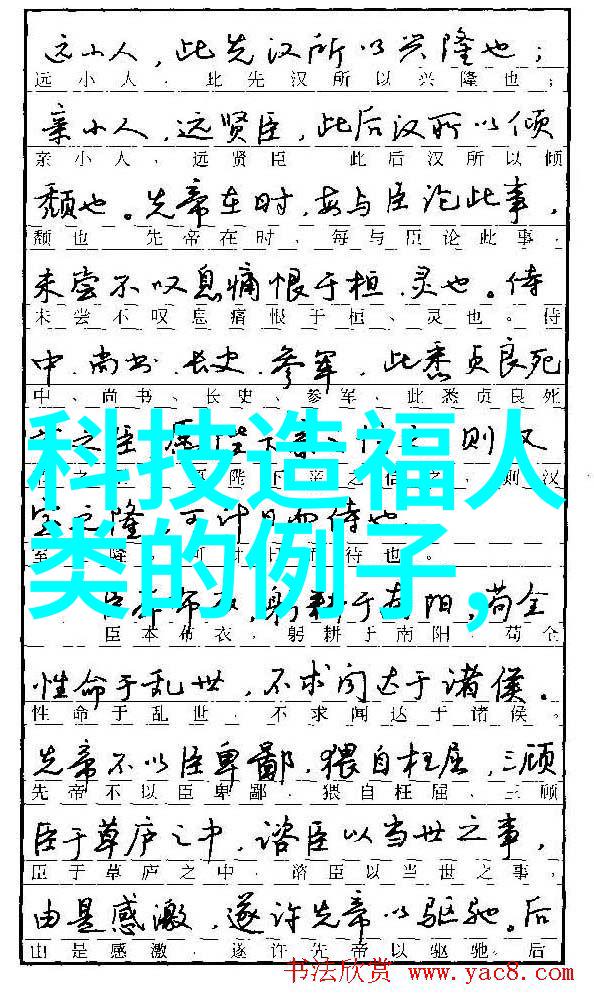 远小人，此先汉所以兴隆也；
远小人，此先汉所以兴隆也；
亲小人，远贤臣，此后汉所以倾
亲小人，远贤臣 此后汉所以倾
颓也。先帝在时，每与臣论此事，
颓也 先帝在时，每与臣论此事，
未尝不叹息痛恨于桓、灵也。侍
未尝不叹息痛恨于桓、灵也。侍
中、尚书、长史、参军，此悉贞良死
中、尚书、长史、参军，此悉贞良死
科技造福人
类的例子，
之臣 陛下亲 则汉
陛下亲之信之，则汉
室之隆，可计日而待也
室 隆 可计日而待也。
臣本布衣，躬耕于南阳，苟全
臣本布衣，躬耕于南阳，苟全
性命于乱世，不求闻达于诸侯。
性命于乱世，不求闻达于诸侯。
先帝不以臣卑鄙，猥自枉屈，三顾
先帝不以臣卑鄙，猥自枉屈、三顾
臣于草庐之中，谘臣以当世之事，
臣于草庐之中，谘臣以当世之事，
由是感激，遂许先帝以驱驰。后
由是感激，遂许先帝以驱驰。后
书法欣赏 www.yac8.com